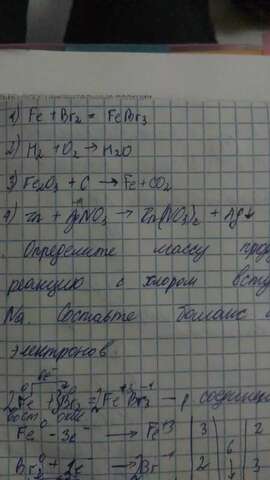 1) Fe + Br₂ = FeBr₃
2) H₂ + O₂ → H₂O
3) Fe₂O₃ + C → Fe + CO₂
4) Zn + AgNO₃ → Zn(NO₃)₂ + Ag↓
Определите массу прод
реакцию с хлором всту
Na. Составьте баланс
электронов
2Fe + 3Br₂ = 2FeBr₃ - р. соедине
Fe⁰ - 3e⁻ → Fe⁺³ 3 2
6
Br₂⁰ + 2e → 2Br⁻ 2 3